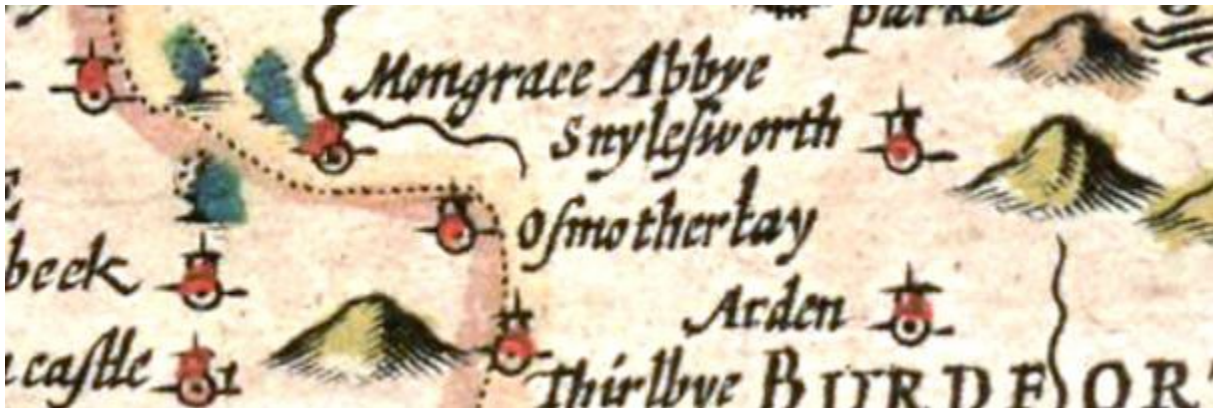 parke
Mongrace Abbye
Snyleſworth
Oſmothertay
beek
Arden
caſtle
Thirlbye BURDFOR